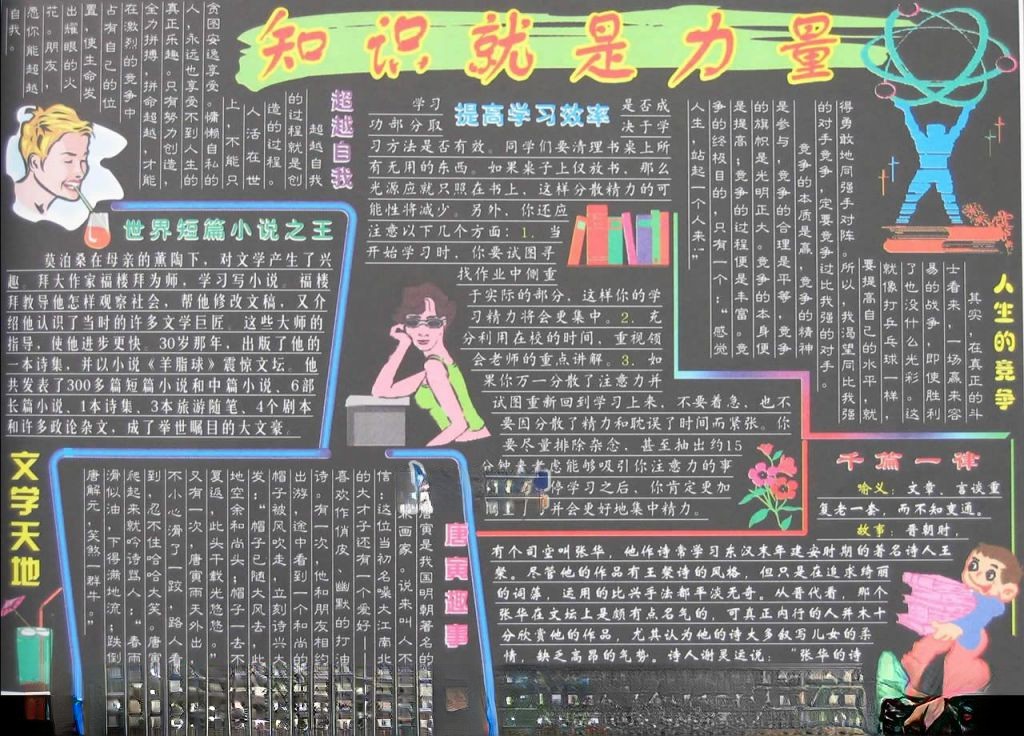 知识就是力量
超越自我
超越自我
的过程就是创
造的过程。
人活在世
上，不能只
贪图安逸享受。慵懒自私的
人，永远也享受不到人生的
真正乐趣。只有努力创造，
全力拼搏，拼命超越，才能
在激烈的竞争中
占有自己的位
置，使生命发
出耀眼的火
花。朋友，
愿你能超越
自我。
提高学习效率
学习 是否成
功部分取 决于学
习方法是否有效。同学们要清理书桌上所
有无用的东西。如果桌子上仅放书，那么
光源应就只照在书上，这样分散精力的可
能性将减少。另外，你还应
注意以下几个方面：1. 当
开始学习时，你要试图寻
找作业中侧重
于实际的部分，这样你的学
习精力将会更集中。2. 充
分利用在校的时间，重视领
会老师的重点讲解。3. 如
果你万一分散了注意力并
试图重新回到学习上来，不要着急，也不
要因分散了精力和耽误了时间而紧张。你
要尽量排除杂念，甚至抽出约15
分钟去考虑能够吸引你注意力的事
停学习之后，你肯定更加
并会更好地集中精力。
人生的竞争
其实，在真正的斗
士看来，一场赢来容
易的战争，即使胜利
了也没什么光彩。这
就像打乒乓球一样，
要提高自己的水平，就
得勇敢地同强手对阵。所以，我渴望同比我强
的对手竞争，一定要竞争过比我强的对手。
竞争的本质是赢，竞争的精神
是参与，竞争的合理是平等，竞争
的旗帜是光明正大。竞争的本身便
是提高；竞争的过程便是丰富。竞
争的终极目的，只有一个：“感觉
人生，站起一个人来”
世界短篇小说之王
莫泊桑在母亲的薰陶下，对文学产生了兴
趣。拜大作家福楼拜为师，学习写小说。福楼
拜教导他怎样观察社会，帮他修改文稿，又介
绍他认识了当时的许多文学巨匠。这些大师的
指导，使他进步更快。30岁那年，出版了他的
一本诗集，并以小说《羊脂球》震惊文坛。他
共发表了300多篇短篇小说和中篇小说、6部
长篇小说、1本诗集、3本旅游随笔、4个剧本
和许多政论杂文，成了举世瞩目的大文豪。
文学天地
唐寅趣事
唐寅是我国明朝著名的
画家。说来叫人不
信：这位当初名噪大江南北
的大才子还有一个爱好
喜欢作俏皮、幽默的打油
诗。有一次，他和朋友相约
出游，途中看到一个和尚的
帽子被风吹走，立刻诗兴大
发：“帽子已随大风去，此
地空余和尚头；帽子一去不
复返，此头千载光悠悠。”
又有一次，唐寅雨天外出，
不小心滑了一跤，路人看
到，忍不住哈哈大笑。唐寅
爬起来就吟诗骂人：“春雨
滑似油，下得满地流；跌倒
唐解元，笑煞一群牛。”
千篇一律
喻义：文章、言谈重
复老一套，而不知变通。
故事：晋朝时，
有个司空叫张华，他作诗常学习东汉末年建安时期的著名诗人王
粲。尽管他的作品有王粲诗的风格，但只是在追求绮丽
的词藻，运用的比兴手法都平淡无奇。从晋代看，那个
张华在文坛上是颇有点名气的，可真正内行的人并木十
分欣赏他的作品，尤其认为他的诗大多叙写儿女的柔
情，缺乏高昂的气势。诗人谢灵运说：“张华的诗